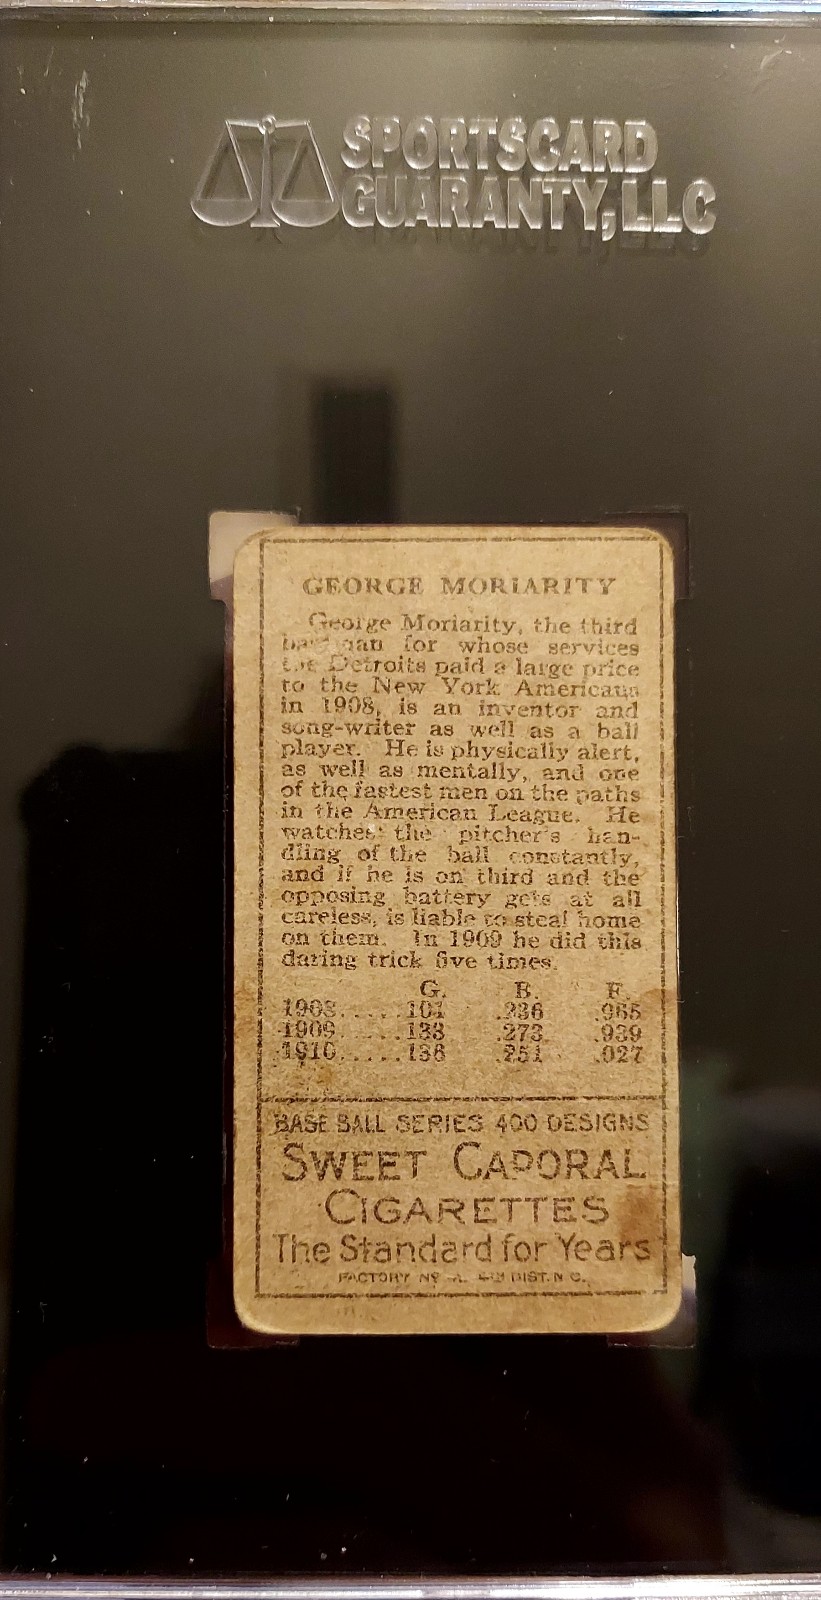 SPORTSCARD
GUARANTY, LLC
GEORGE MORIARITY
George Moriarity, the third
for whose services
the Detroits paid a large price
to the New York Americans
in 1908, is an inventor and
song-writer as well as a ball
player. He is physically alert,
as well as mentally, and one
of the fastest men on the paths
in the American League. He
watches the pitcher's han-
dling of the ball constantly,
and if he is on third and the
opposing battery gets at all
careless, is liable to steal home
on them. In 1909 he did this
daring trick five times.
G. B. F.
1908.....101 .236 .965
1909.....133 .273 .939
1910.....136 .251
BASE BALL SERIES 400 DESIGNS
SWEET CAPORAL
CIGARETTES
The Standard for Years
FACTORY Nº DIST. N.C.